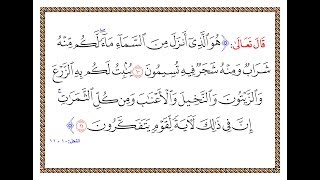 قَالَ تَعَالَى: ﴿ هُوَ الَّذِي أَنزَلَ مِنَ السَّمَاءِ مَاءً لَّكُم مِّنْهُ
شَرَابٌ وَمِنْهُ شَجَرٌ فِيهِ تُسِيمُونَ ۝١٠ يُنبِتُ لَكُم بِهِ الزَّرْعَ
وَالزَّيْتُونَ وَالنَّخِيلَ وَالْأَعْنَابَ وَمِن كُلِّ الثَّمَرَاتِ ۗ
إِنَّ فِي ذَٰلِكَ لَآيَةً لِّقَوْمٍ يَتَفَكَّرُونَ ۝١١ ﴾ النحل: ١٠ - ١١